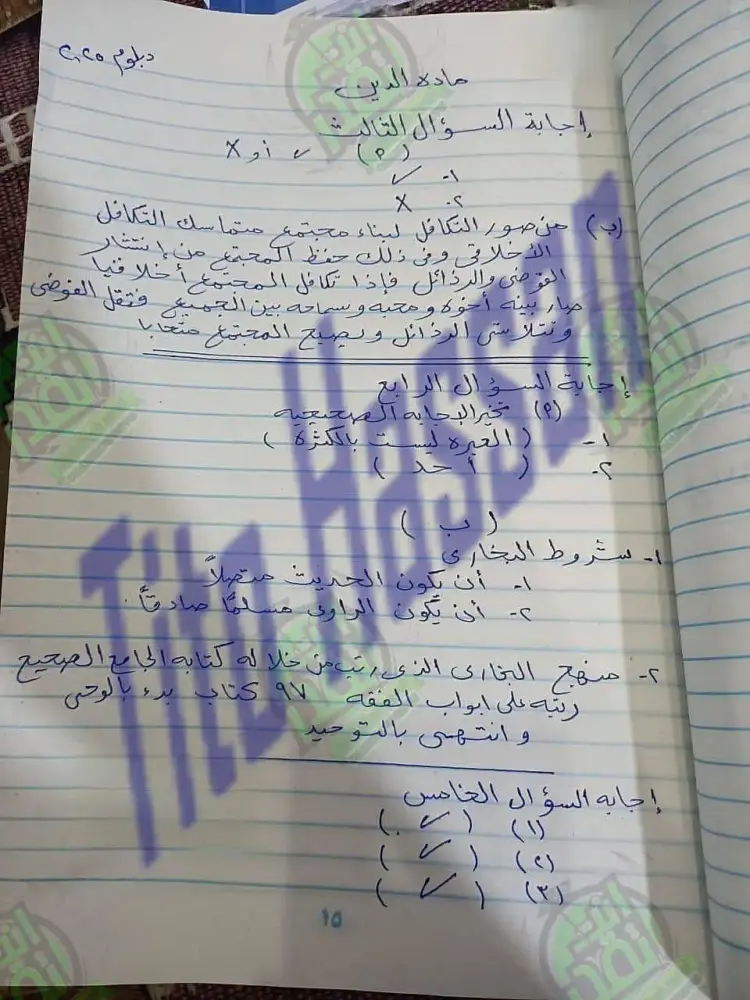 دبلوم ٢٠٢٥
مادة الدين
إجابة السؤال الثالث
(٢) ✓ أو X
١- ✓
٢- X
(ب) من صور التكافل لبناء مجتمع متماسك التكافل
الأخلاقي وفى ذلك حفظ المجتمع من إنتشار
الفوضى والرذائل فإذا تكافل المجتمع أخلاقيا
صار بينه أخوه ومحبه وسماحه بين الجميع فتقل الفوضى
وتتلاشى الرذائل ويصبح المجتمع متحابا
إجابة السؤال الرابع
(٢) تخير الإجابه الصحيحيه
١- (العبره ليست بالكثرة)
٢- (أحد)
(ب)
١- شروط البخارى
١- أن يكون الحديث متصلاً
٢- أن يكون الراوى مسلمًا صادقًا.
٢- منهج البخارى الذى رتب من خلاله كتابه الجامع الصحيح
رتبه على ابواب الفقه ٩٧ كتاب بدء بالوحى
وانتهى بالتوحيد
إجابه السؤال الخامس
(١) (✓)
(٢) (✓)
(٣) (✓)
١٥
Tito Hassan